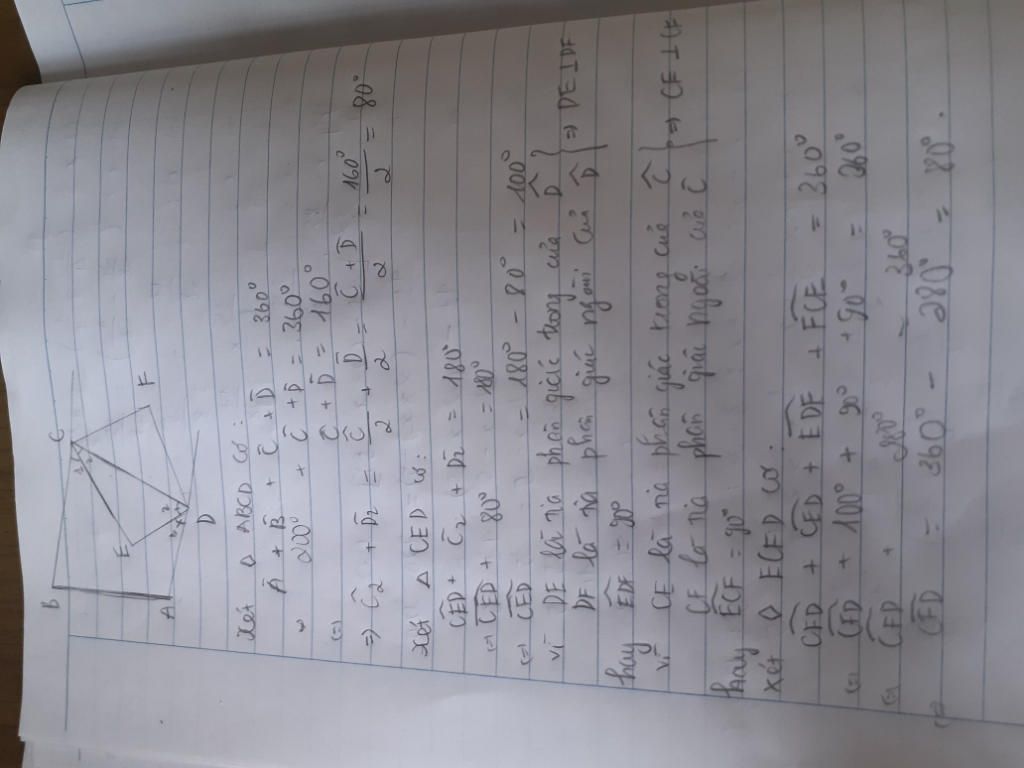 B
C
E
F
A
D
Xét ◊ ABCD có:
Â + B̂ + Ĉ + D̂ = 360°
200° + Ĉ + D̂ = 360°
(=) Ĉ + D̂ = 160°
=> Ĉ2 + D̂2 = Ĉ/2 + D̂/2 = Ĉ + D̂/2 = 160°/2 = 80°
Xét Δ CED có:
CED + Ĉ2 + D̂2 = 180°
(=) CED + 80° = 180°
(=) CED = 180° - 80° = 100°
vì DE là tia phân giác trong của D̂
DF là tia phân giác ngoài của D̂ } => DE ⊥ DF
hay EDF = 90°
vì CE là tia phân giác trong của Ĉ
CF là tia phân giác ngoài của Ĉ } => CE ⊥ CF
hay ECF = 90°
Xét ◊ ECFD có:
CFD + CED + EDF + FCE = 360°
(=) CFD + 100° + 90° + 90° = 360°
(=) CFD + 280° = 360°
(=) CFD = 360° - 280° = 80°.